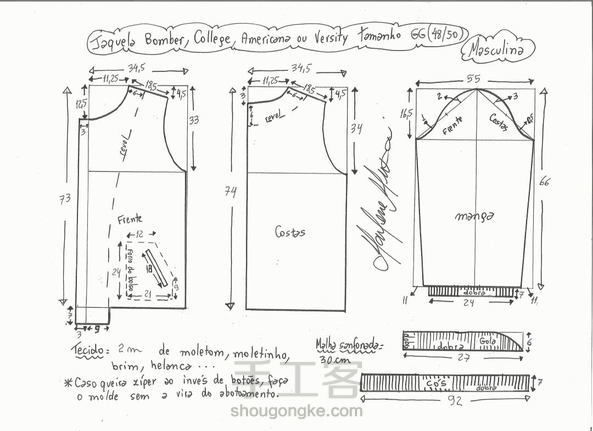 Jaqueta Bomber, College, Americana ou Versity tamanho GG (48/50)
Masculina
34,5
11,25
18,5
6
4,5
12,5
3
33
73
revel
Frente
12
Forro do bolso
24
18
9
21
7
3
9
34,5
11,25
18,5
6
4,5
3
6
revel
34
74
Costas
55
16,5
2
3
Frente
Costas
66
manga
11
11
dobra
7
24
Tecido: 2m de moletom, moletinho,
brim, helanca ...
* Caso queira zíper ao invés de botões, faça
o molde sem a vira do abotoamento.
Malha sanfonada:
30cm
dobra
Gola
dobra
6
27
cós
dobra
7
92
手工客
shougongke.com